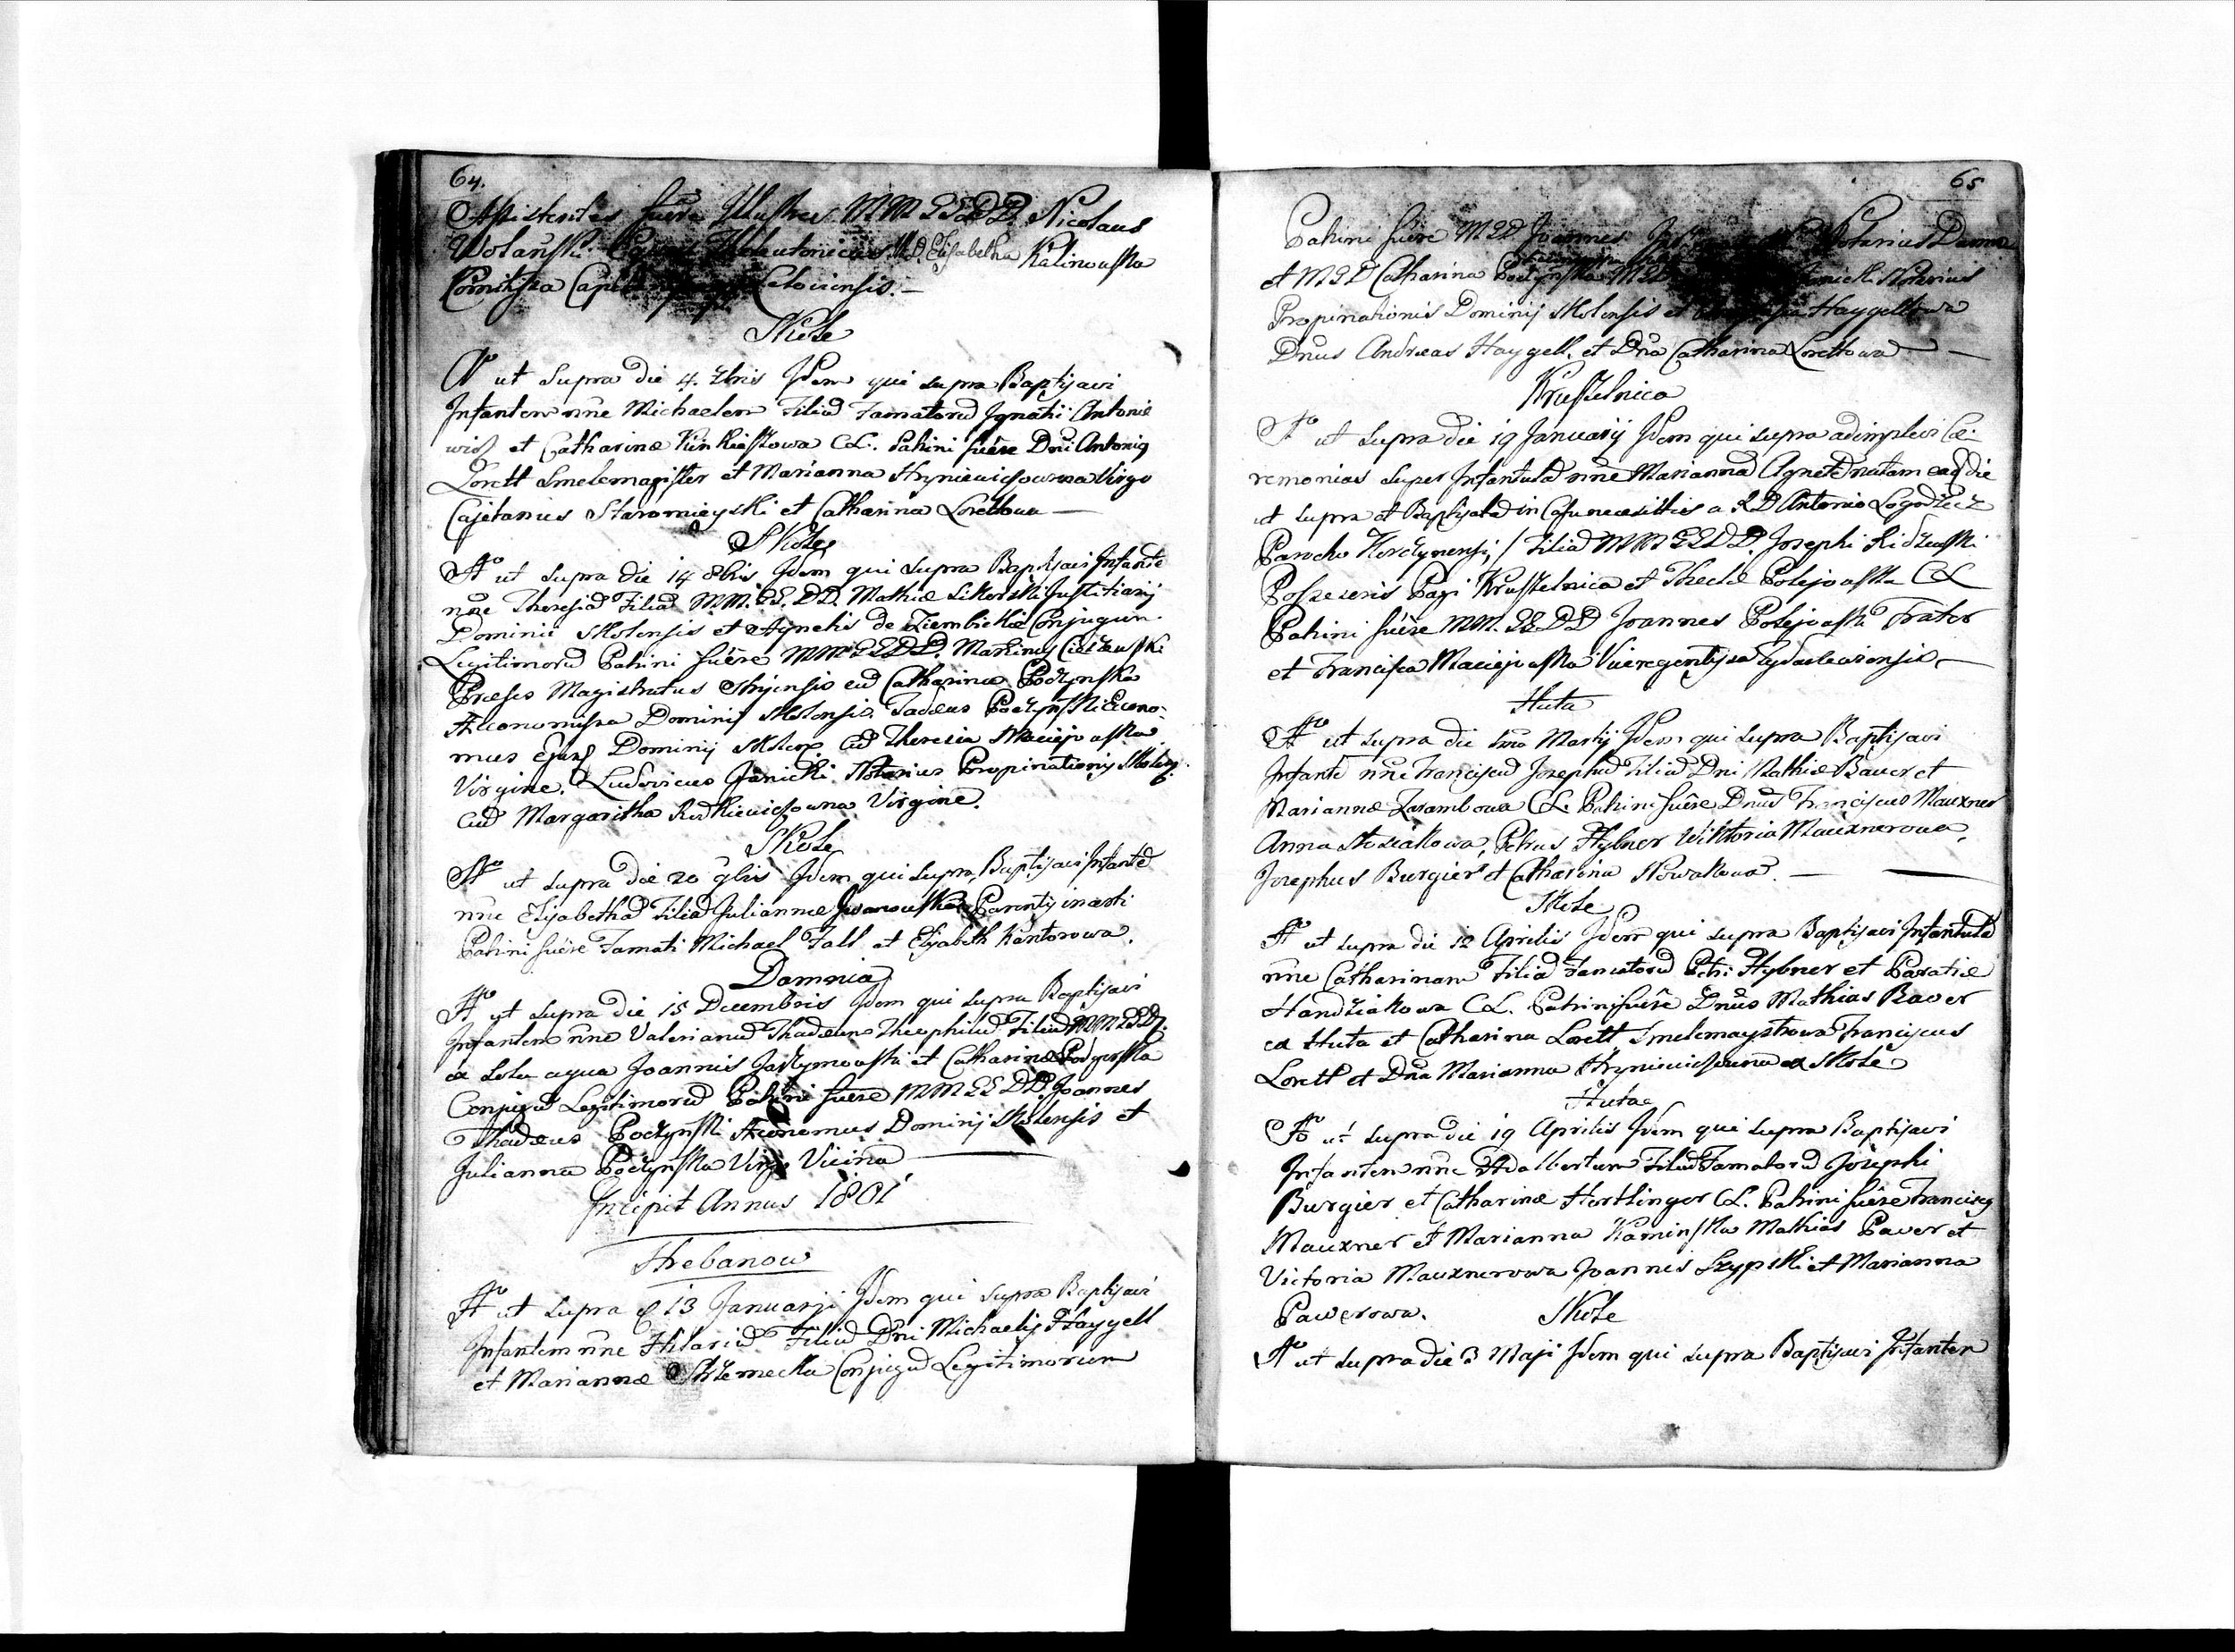 64.
Assistentes fuere Illustres M.M. GG. D.D. Nicolaus
Wolański Theutonicus M.D. Elisabetha Kalinowska
Comitissa
Skole
Ao ut Supra die 4. 7bris Idem qui supra Baptisavi
Infantem nñe Michaelem Filiũ Famatorũ Ignatii Antonie
wicz et Catharinæ CL. Patrini fuêre Dñi Antonius
Lorett Smelcmagister et Marianna Hryniewiczowna Virgo
Cajetanus Staromieyski et Catharina Lorettowa —
Skole
Ao ut Supra die 14 8bris Idem qui supra Baptisavi Infantẽ
nñe Theresiã Filiã M.M. GG. DD. Mathiæ Sikorski Justitiarij
Dominii Skolensis et Agnetis de Ziembickie Conjugum
Legitimorũ Patrini fuêre MM GG DD. Martinus
Præses Magistratus Stryensis cũ Catharina Poczynska
Æconomissa Dominij Skolensis. Tadeus Poczynski Œcono-
mus Ejusd Dominij Skolens. cũ Theresia Maciejowska
Virgine. Ludovicus Janicki Notarius Propinationis Skolens.
cũ Margaritha Virgine.
Skole
Ao ut supra die 20 9bris Idem qui supra Baptisavi Infantẽ
nñe Elisabethã Filiã Juliannæ Iwanowska Parentis incerti
Patrini fuêre Famati Michael Fall et Elisabeth Kantorowa.
Demnia
Ao ut supra die 15 Decembris Idem qui supra Baptisavi
Infantem nñe Valerianũ Thadeum Theophilũ Filiũ MM GG DD.
ex sola aqua Joannis et Catharinæ
Conjugũ Legitimorũ Patrini fuere MM GG DD. Joannes
Thadæus Poczynski Æconomus Dominij Skolensis et
Julianna Poczynska Virgo Vicina —
Incipit Annus 1801
Hrebanow
Ao ut supra 13 Januarji Idem qui supra Baptisavi
Infantem nñe Hilariũ Filiũ Dñi Michaelis Haygell
et Mariannæ Conjugũ Legitimorum
65
Patrini fuêre MGD Joannes Notarius
et MGD Catharina Poczynska MGD Janicki Notarius
Propinationis Dominij Skolensis et Haygellowa
Dñus Andreas Haygell. et Dña Catharina Lorettowa —
Kruszelnica
Ao ut supra die 19 Januarij Idem qui supra adimplevi Cæ-
remonias super Infantulã nñe Mariannã Agnetẽ natam eadẽ die
ut supra et Baptisatã in Casu necessitatis a RD Antonio
Parocho / Filiã MM GG DD. Josephi
Possessoris Pagi Kruszelnica et Theclæ CL
Patrini fuêre MM. GG DD Joannes Frater
et Francisca Maciejowska
Huta
Ao ut supra die 1ma Martij Idem qui supra Baptisavi
Infantẽ nñe Franciscũ Josephũ Filiũ Dñi Mathiæ Bauer et
Mariannæ Zarambowa CL. Patrini fuêre Dñus Franciscus Mauxner
Anna, Petrus Hybner Wiktoria Mauxnerowa,
Josephus Burgier et Catharina Nowakowa. —
Skole
Ao ut supra die 12 Aprilis Idem qui supra Baptisavi Infantulã
nñe Catharinam Filiã Famatorũ Petri Hybner et Paratiæ
Handziakowa CL. Patrini fuêre Dñus Mathias Baver
ex Huta et Catharina Lorett Smelcmaystrowa Franciscus
Lorett et Dña Marianna Hryniewiczowna ex Skole
Hutæ
Ao ut supra die 19 Aprilis Idem qui supra Baptisavi
Infantem nñe Adalbertum Filiũ Famatorũ Josephi
Burgier et Catharinæ Hertlinger CL. Patrini fuêre Franciscus
Mauxner et Marianna Kaminska Mathias Paver et
Victoria Mauxnerowa Joannis Szypski et Marianna
Pawerowa.
Skole
Ao ut supra die 3 Maji Idem qui supra Baptisavi Infantem